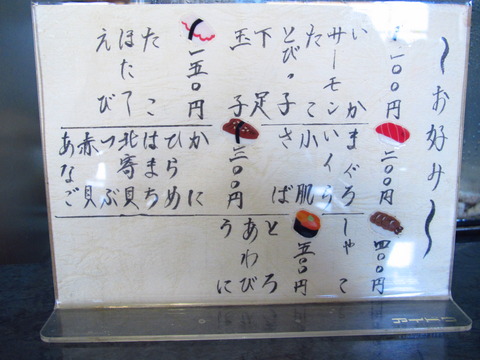 〜お好み〜
一〇〇円
いか
サーモン
たこ
とびっ子
下足
玉子
一五〇円
たこ
ほたて
えび
二〇〇円
まぐろ
いくら
小肌
さば
三〇〇円
かに
ひらめ
はまち
北寄貝
つぶ
赤貝
あなご
四〇〇円
しゃこ
五〇〇円
とろ
あわび
うに